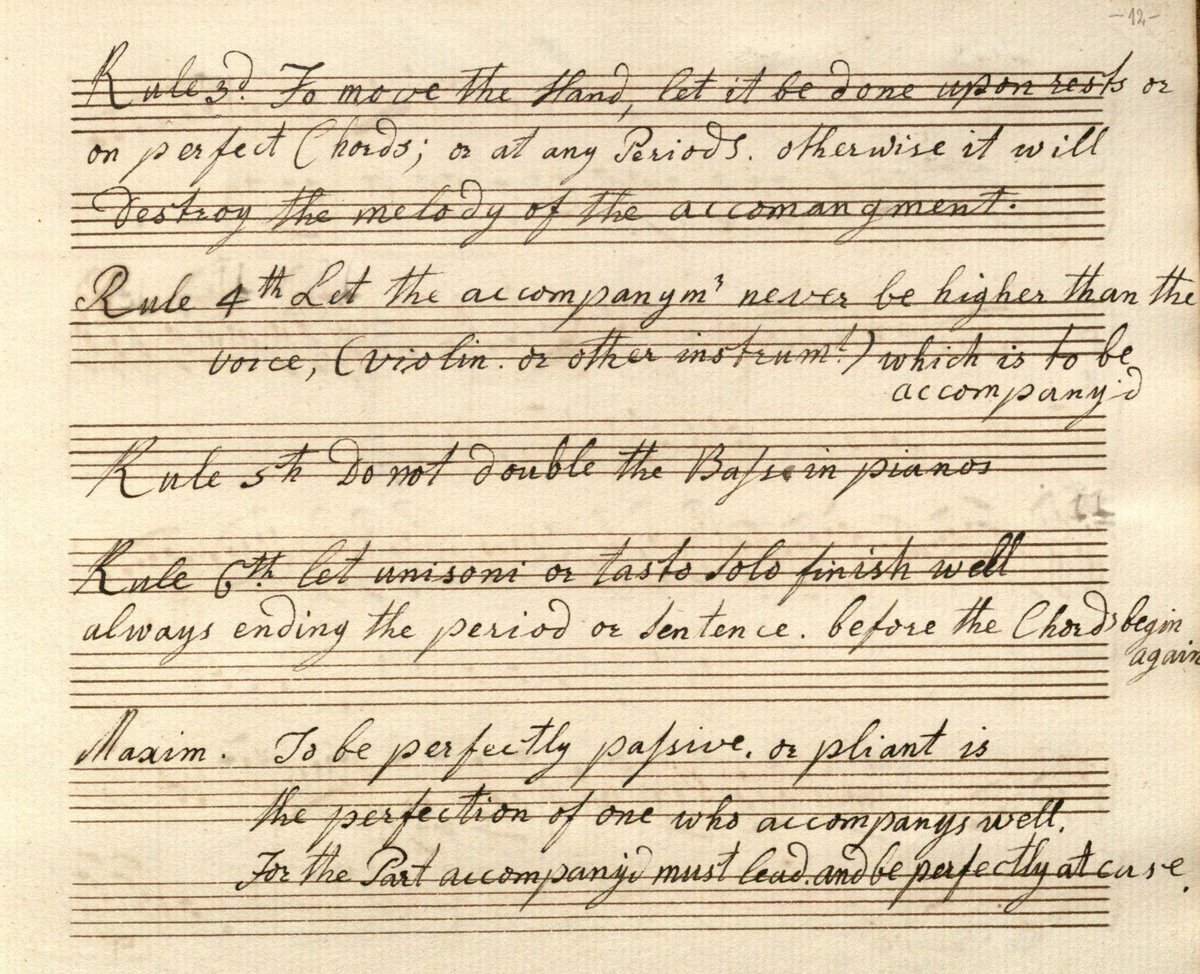 -12-
Rule 3d. To move the Hand, let it be done upon rests or
on perfect Chords; or at any Periods. otherwise it will
destroy the melody of the accomangment.
Rule 4th Let the accompanymt never be higher than the
voice, (violin. or other instrumt.) which is to be
accompany'd
Rule 5th Do not double the Baſs in pianos
Rule 6th. let unisoni or tasto solo finish well
always ending the period or sentence. before the Chords begin
again
Maxim. To be perfectly paſsive. or pliant is
the perfection of one who accompanys well.
For the Part accompany'd must lead. and be perfectly at ease.